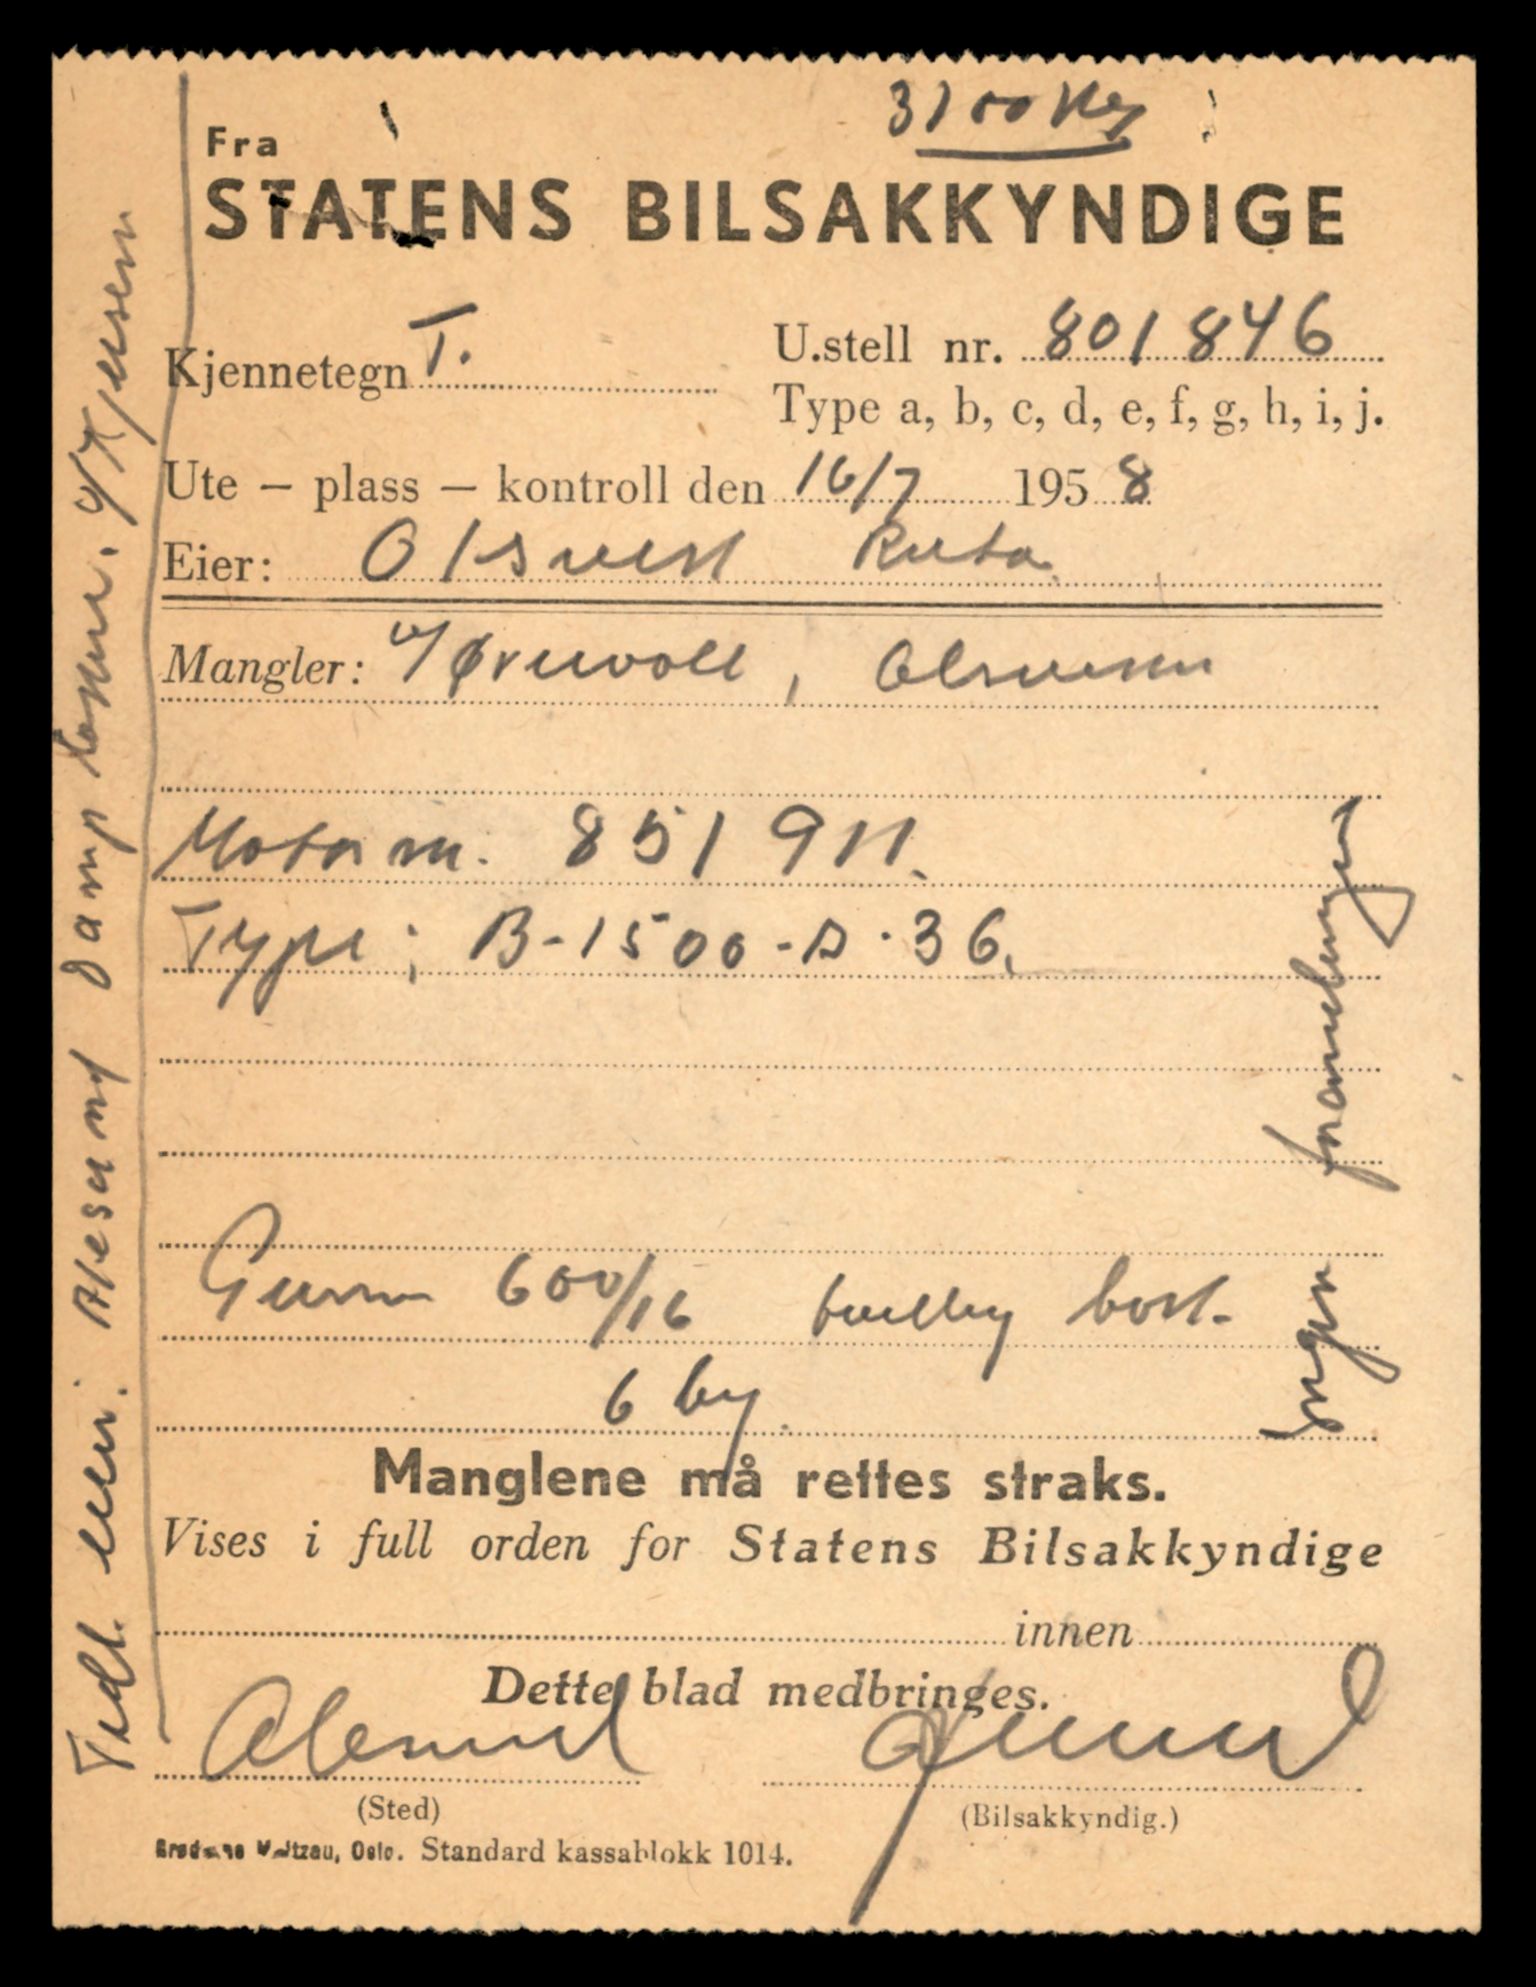 3100 kg
Fra
STATENS BILSAKKYNDIGE
Kjennetegn T.
U.stell nr. 801846
Type a, b, c, d, e, f, g, h, i, j.
Ute – plass – kontroll den 16/7 1958
Eier: Olsvest Ruta
Mangler: v/Ørnevoll, Olsvesten
Motor nr. 851911.
Type: B-1500-A-36.
Gummi 600/16 bort.
6
Ingen
Manglene må rettes straks.
Vises i full orden for Statens Bilsakkyndige
innen
Dette blad medbringes.
Alesund
(Sted)
(Bilsakkyndig.)
Brødrene Waitzau, Oslo. Standard kassablokk 1014.
Tidl. eier: Alesund Damp